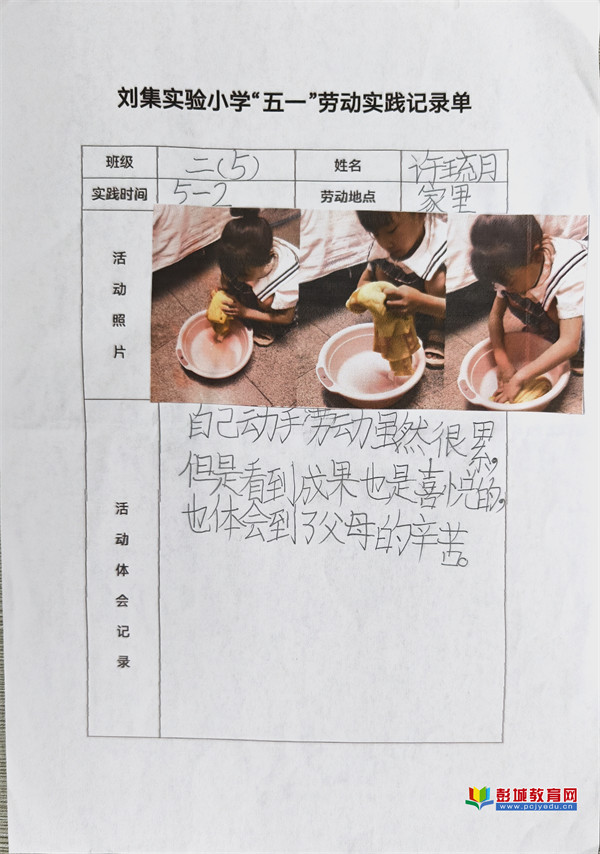 刘集实验小学“五一”劳动实践记录单
班级 二(5) 姓名 许琉月
实践时间 5-2 劳动地点 家里
活动照片
活动体会记录
自己动手劳动虽然很累,
但是看到成果也是喜悦的,
也体会到了父母的辛苦。
彭城教育网
www.pcjyedu.cn